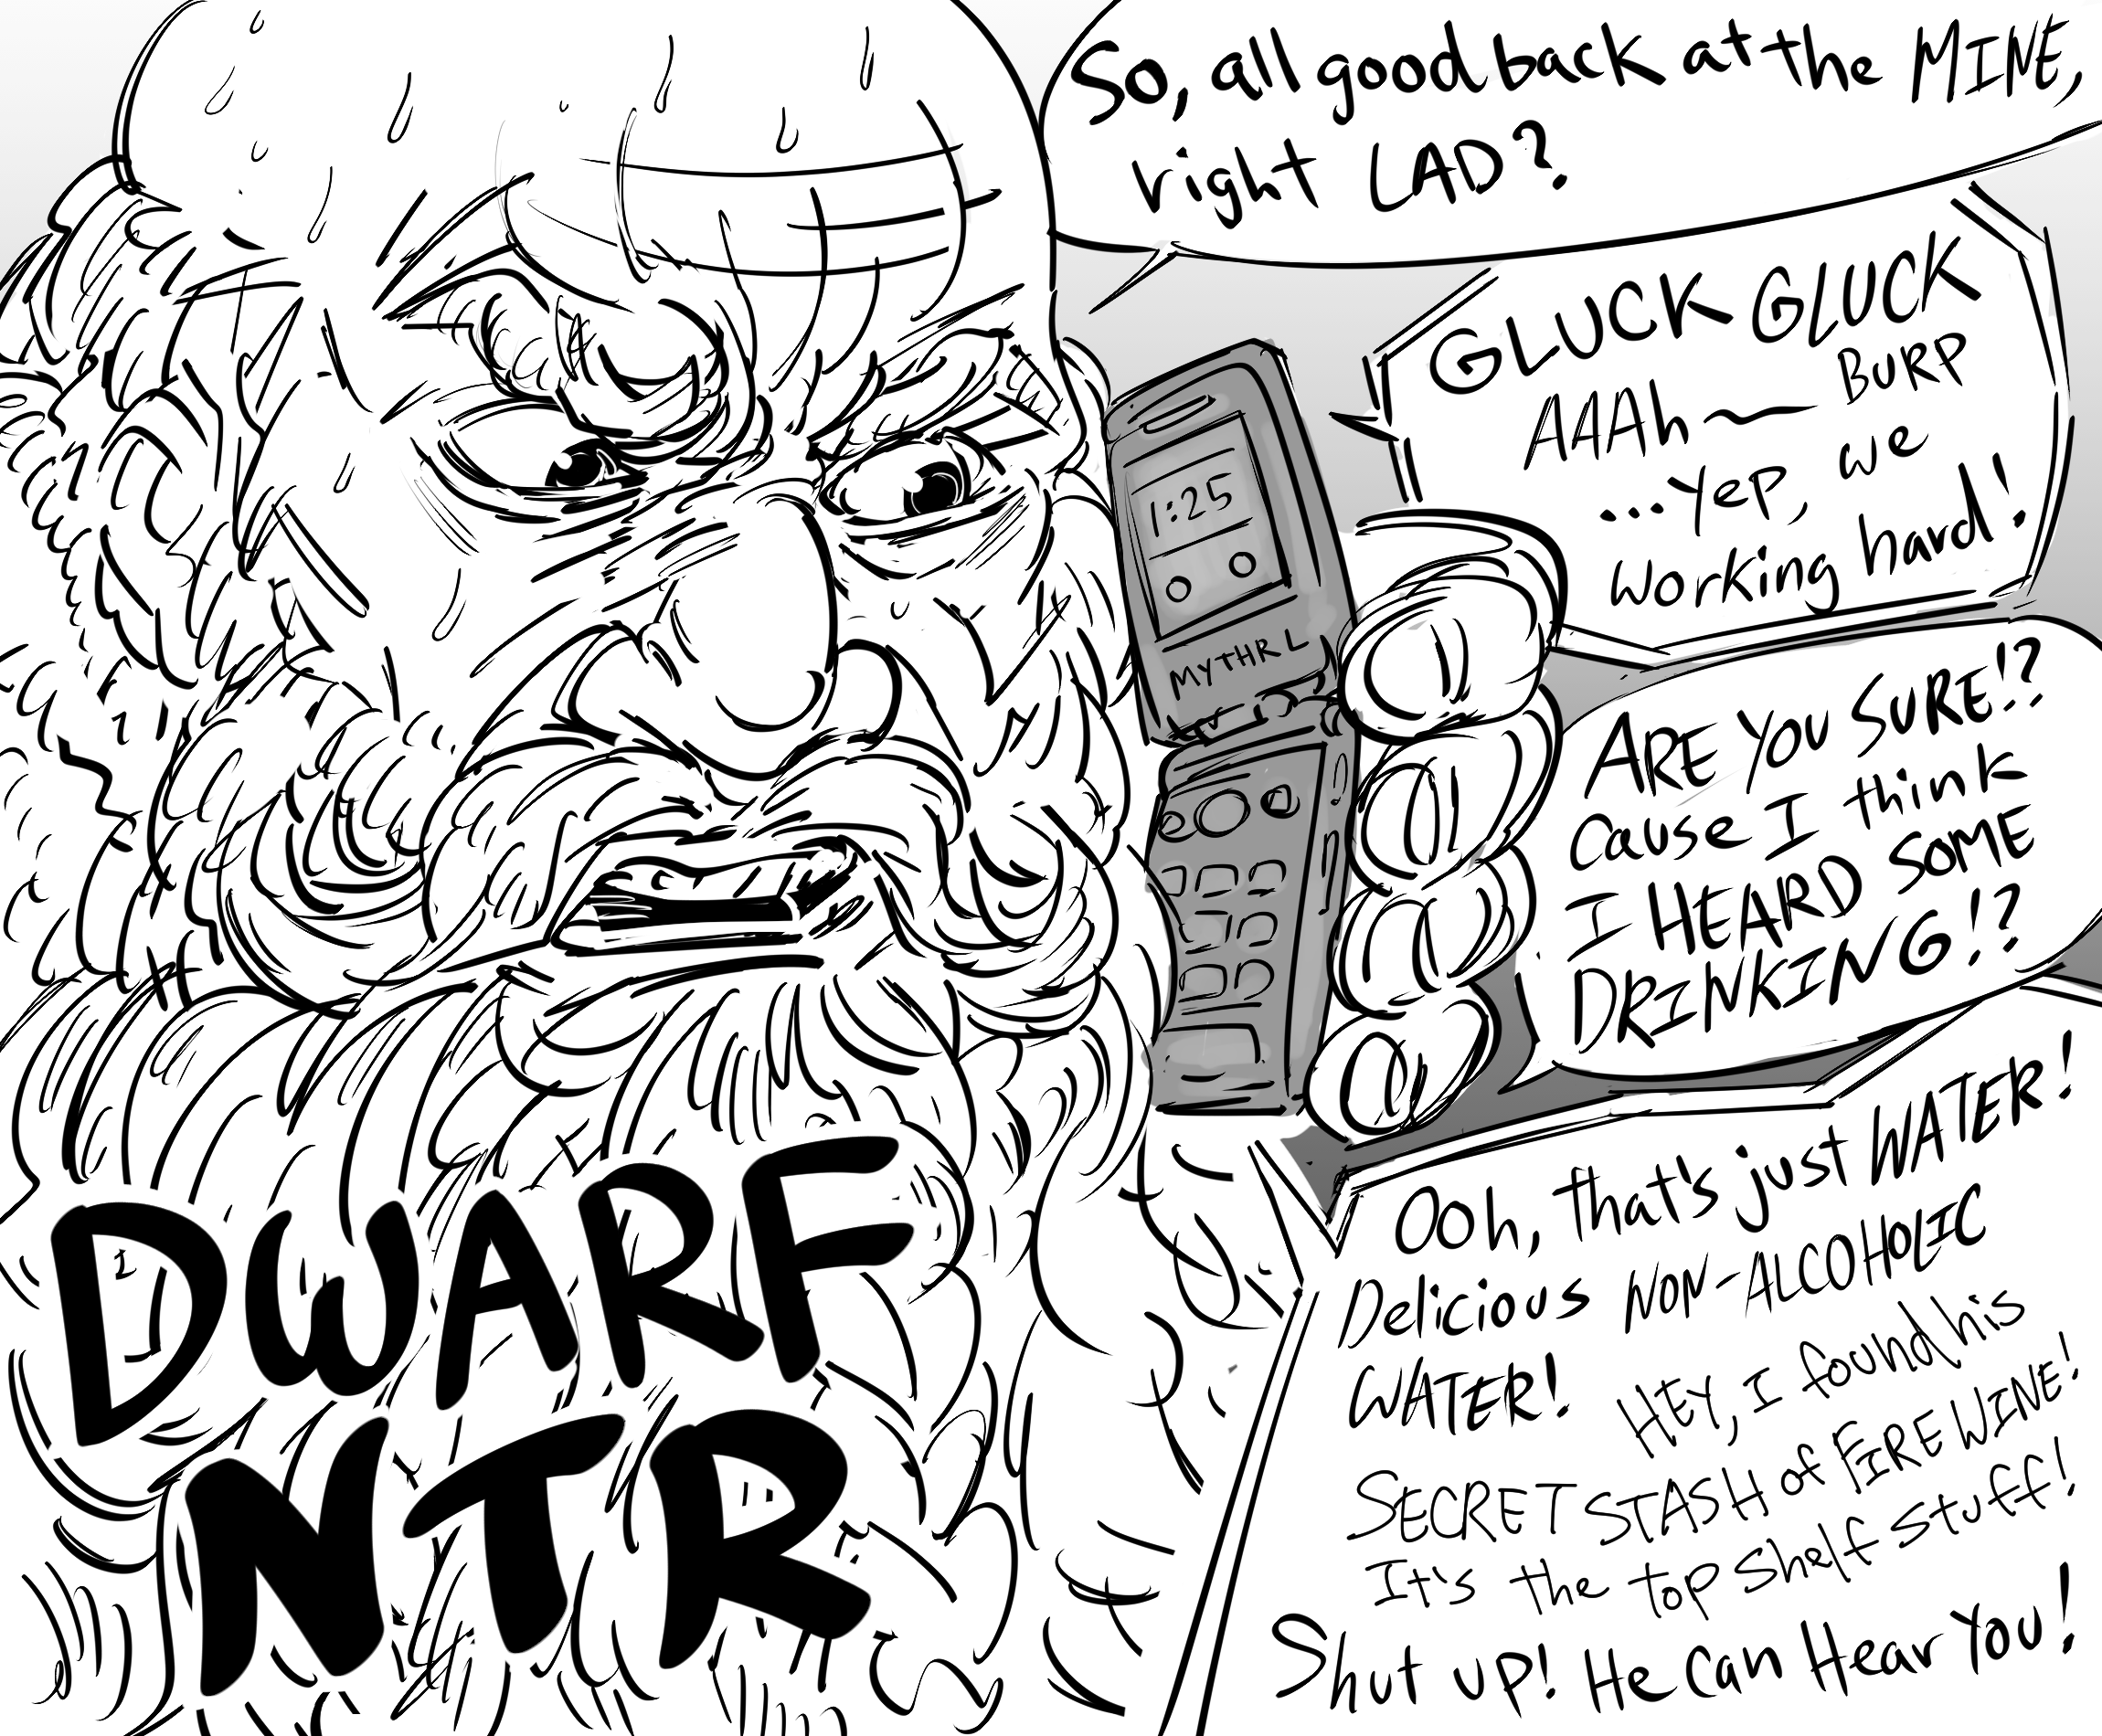 So, all good back at the MINE,
right LAD?
GLUCK GLUCK
AAAh~ BURP
...Yep, we
working hard!
1:25
MYTHRL
ARE YOU SURE!?
Cause I think
I HEARD SOME
DRINKING!?
Ooh, that's just WATER!
Delicious NON-ALCOHOLIC
WATER!
HEY, I found his
SECRET STASH of FIREWINE!
It's the top shelf stuff!
Shut up! He Can Hear You!
DWARF
NTR